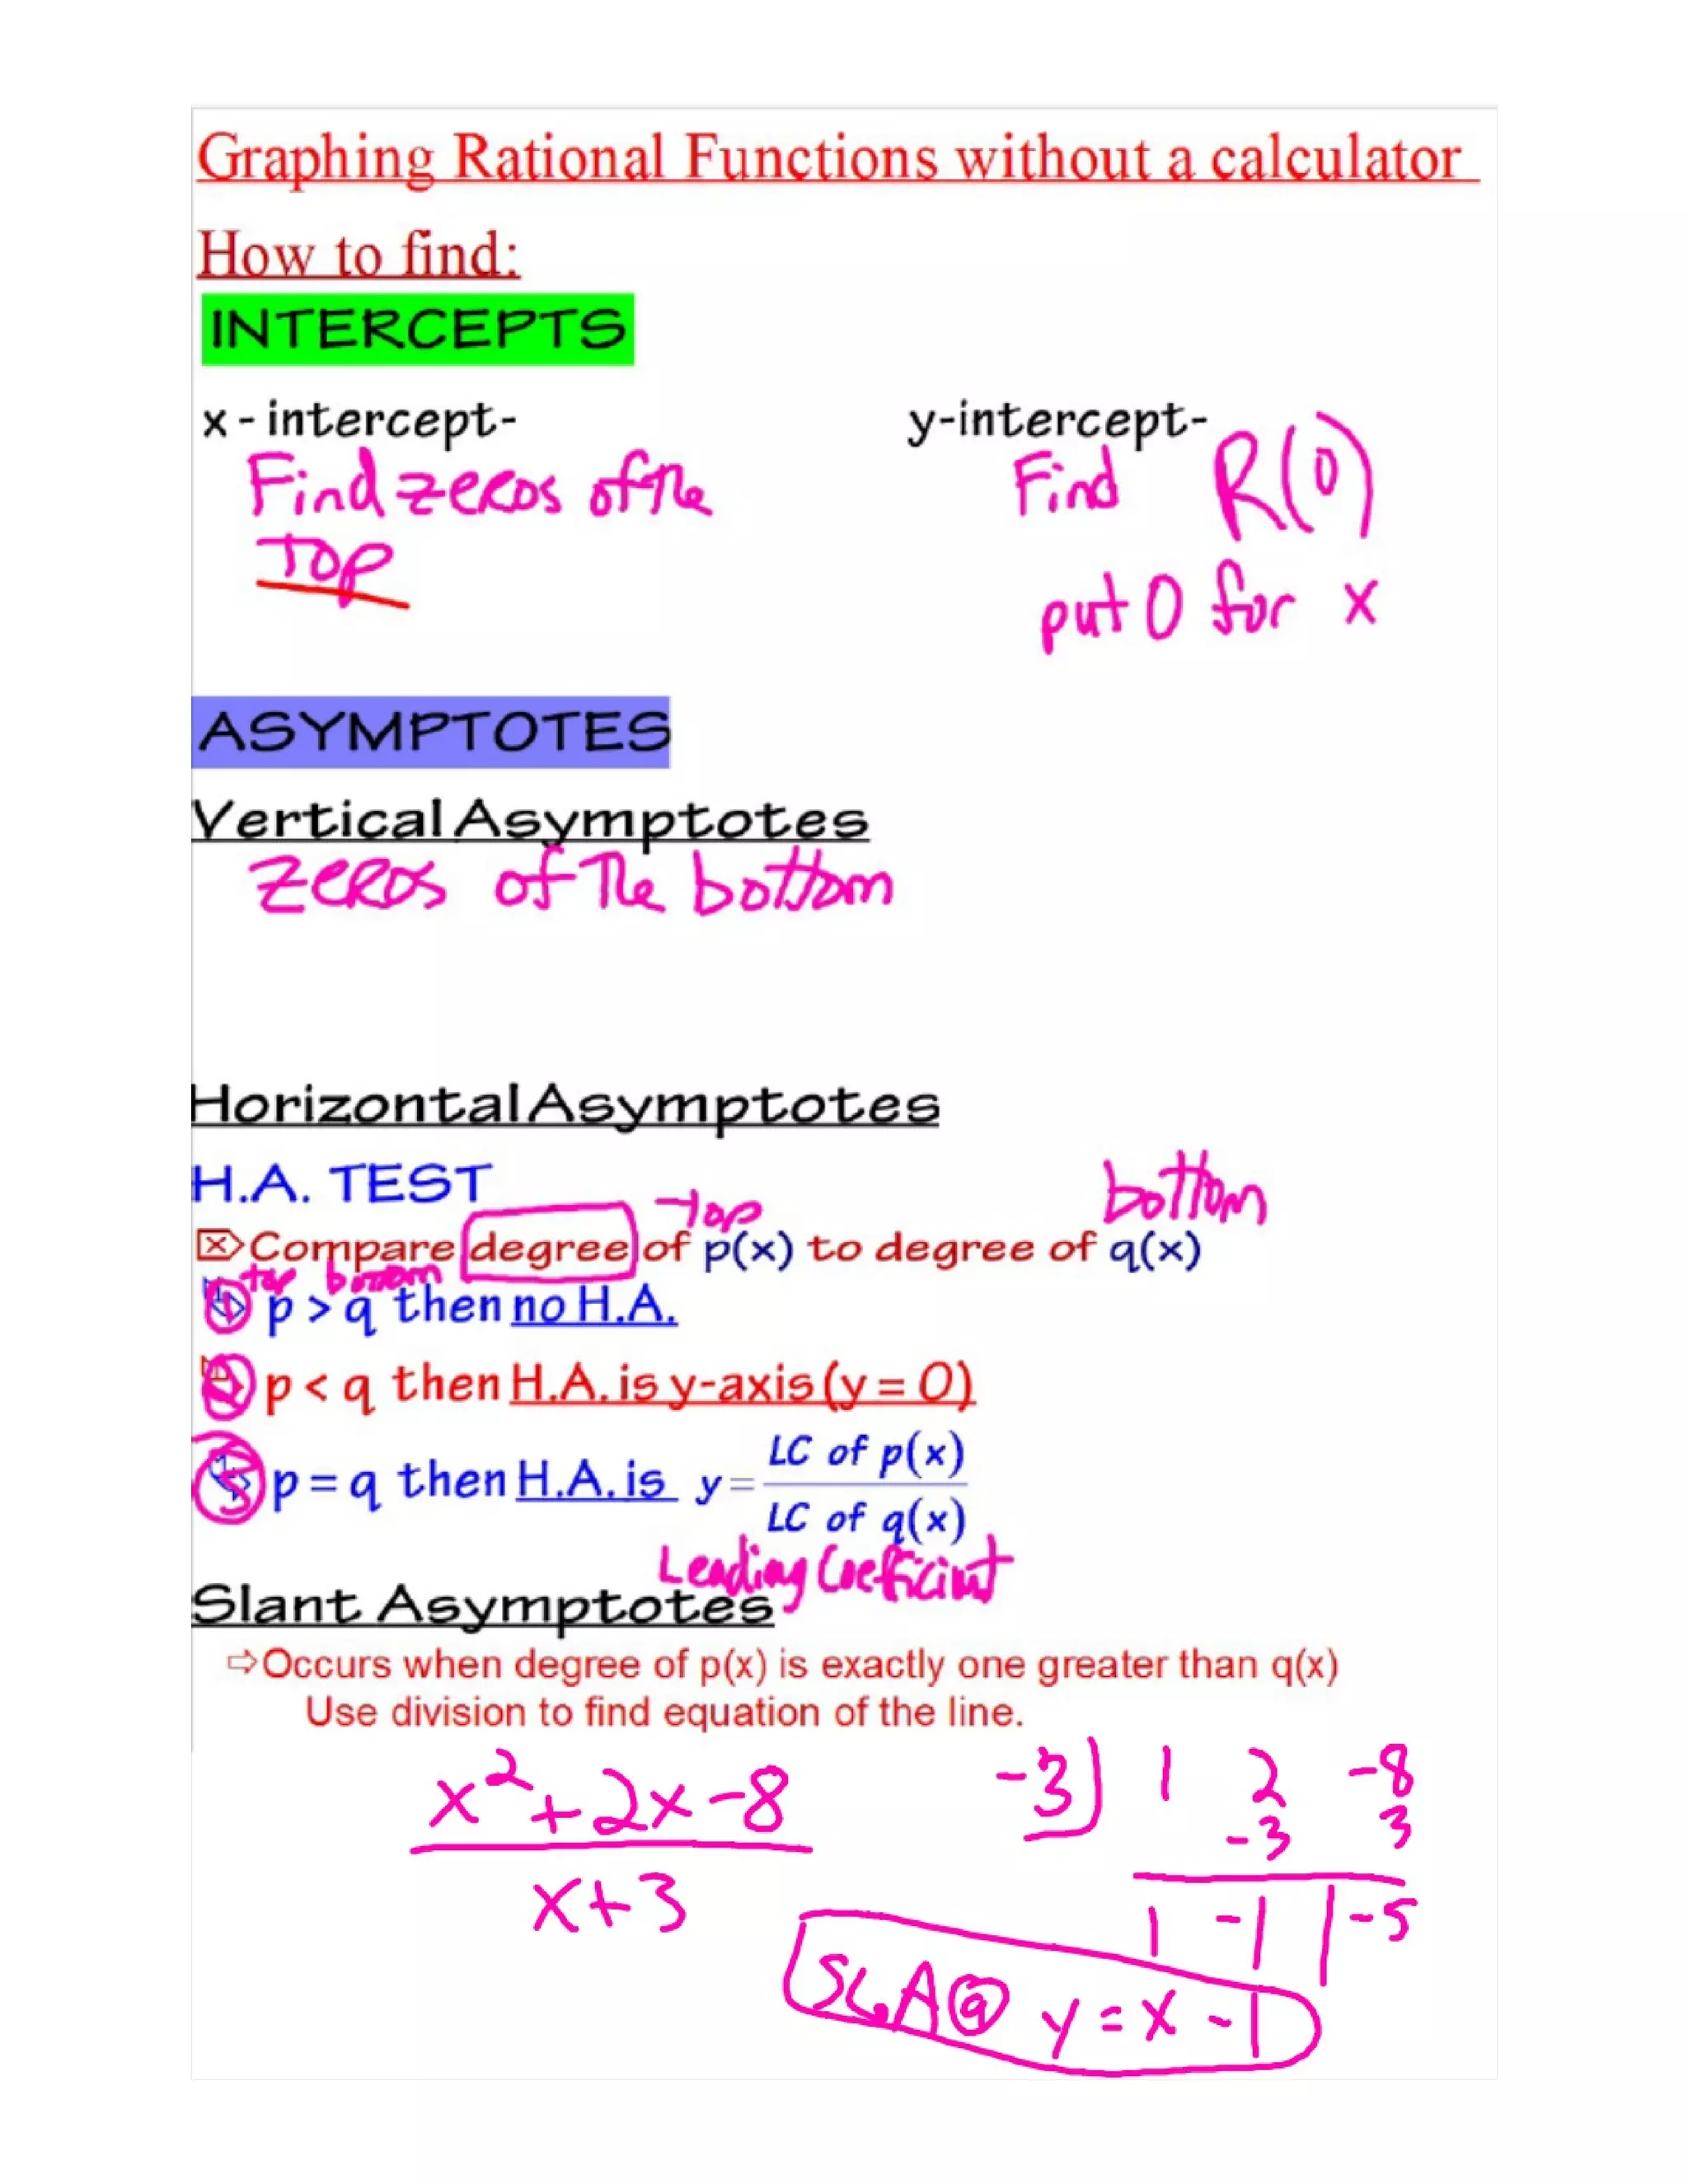 Graphing Rational Functions without a calculator
How to find:
INTERCEPTS
x - intercept-
y-intercept-
Find zeros of the
Top
Find R(0)
put 0 for x
ASYMPTOTES
Vertical Asymptotes
zeros of the bottom
Horizontal Asymptotes
H.A. TEST
top bottom
Compare degree of p(x) to degree of q(x)
top bottom
1 p > q then no H.A.
2 p < q then H.A. is y-axis (y = 0)
3 p = q then H.A. is y = LC of p(x) / LC of q(x)
Leading Coefficient
Slant Asymptotes
⇨Occurs when degree of p(x) is exactly one greater than q(x)
Use division to find equation of the line.
x² + 2x - 8
x + 3
-3 1 2 -8
-3 3
1 -1 -5
SLA @ y = x - 1